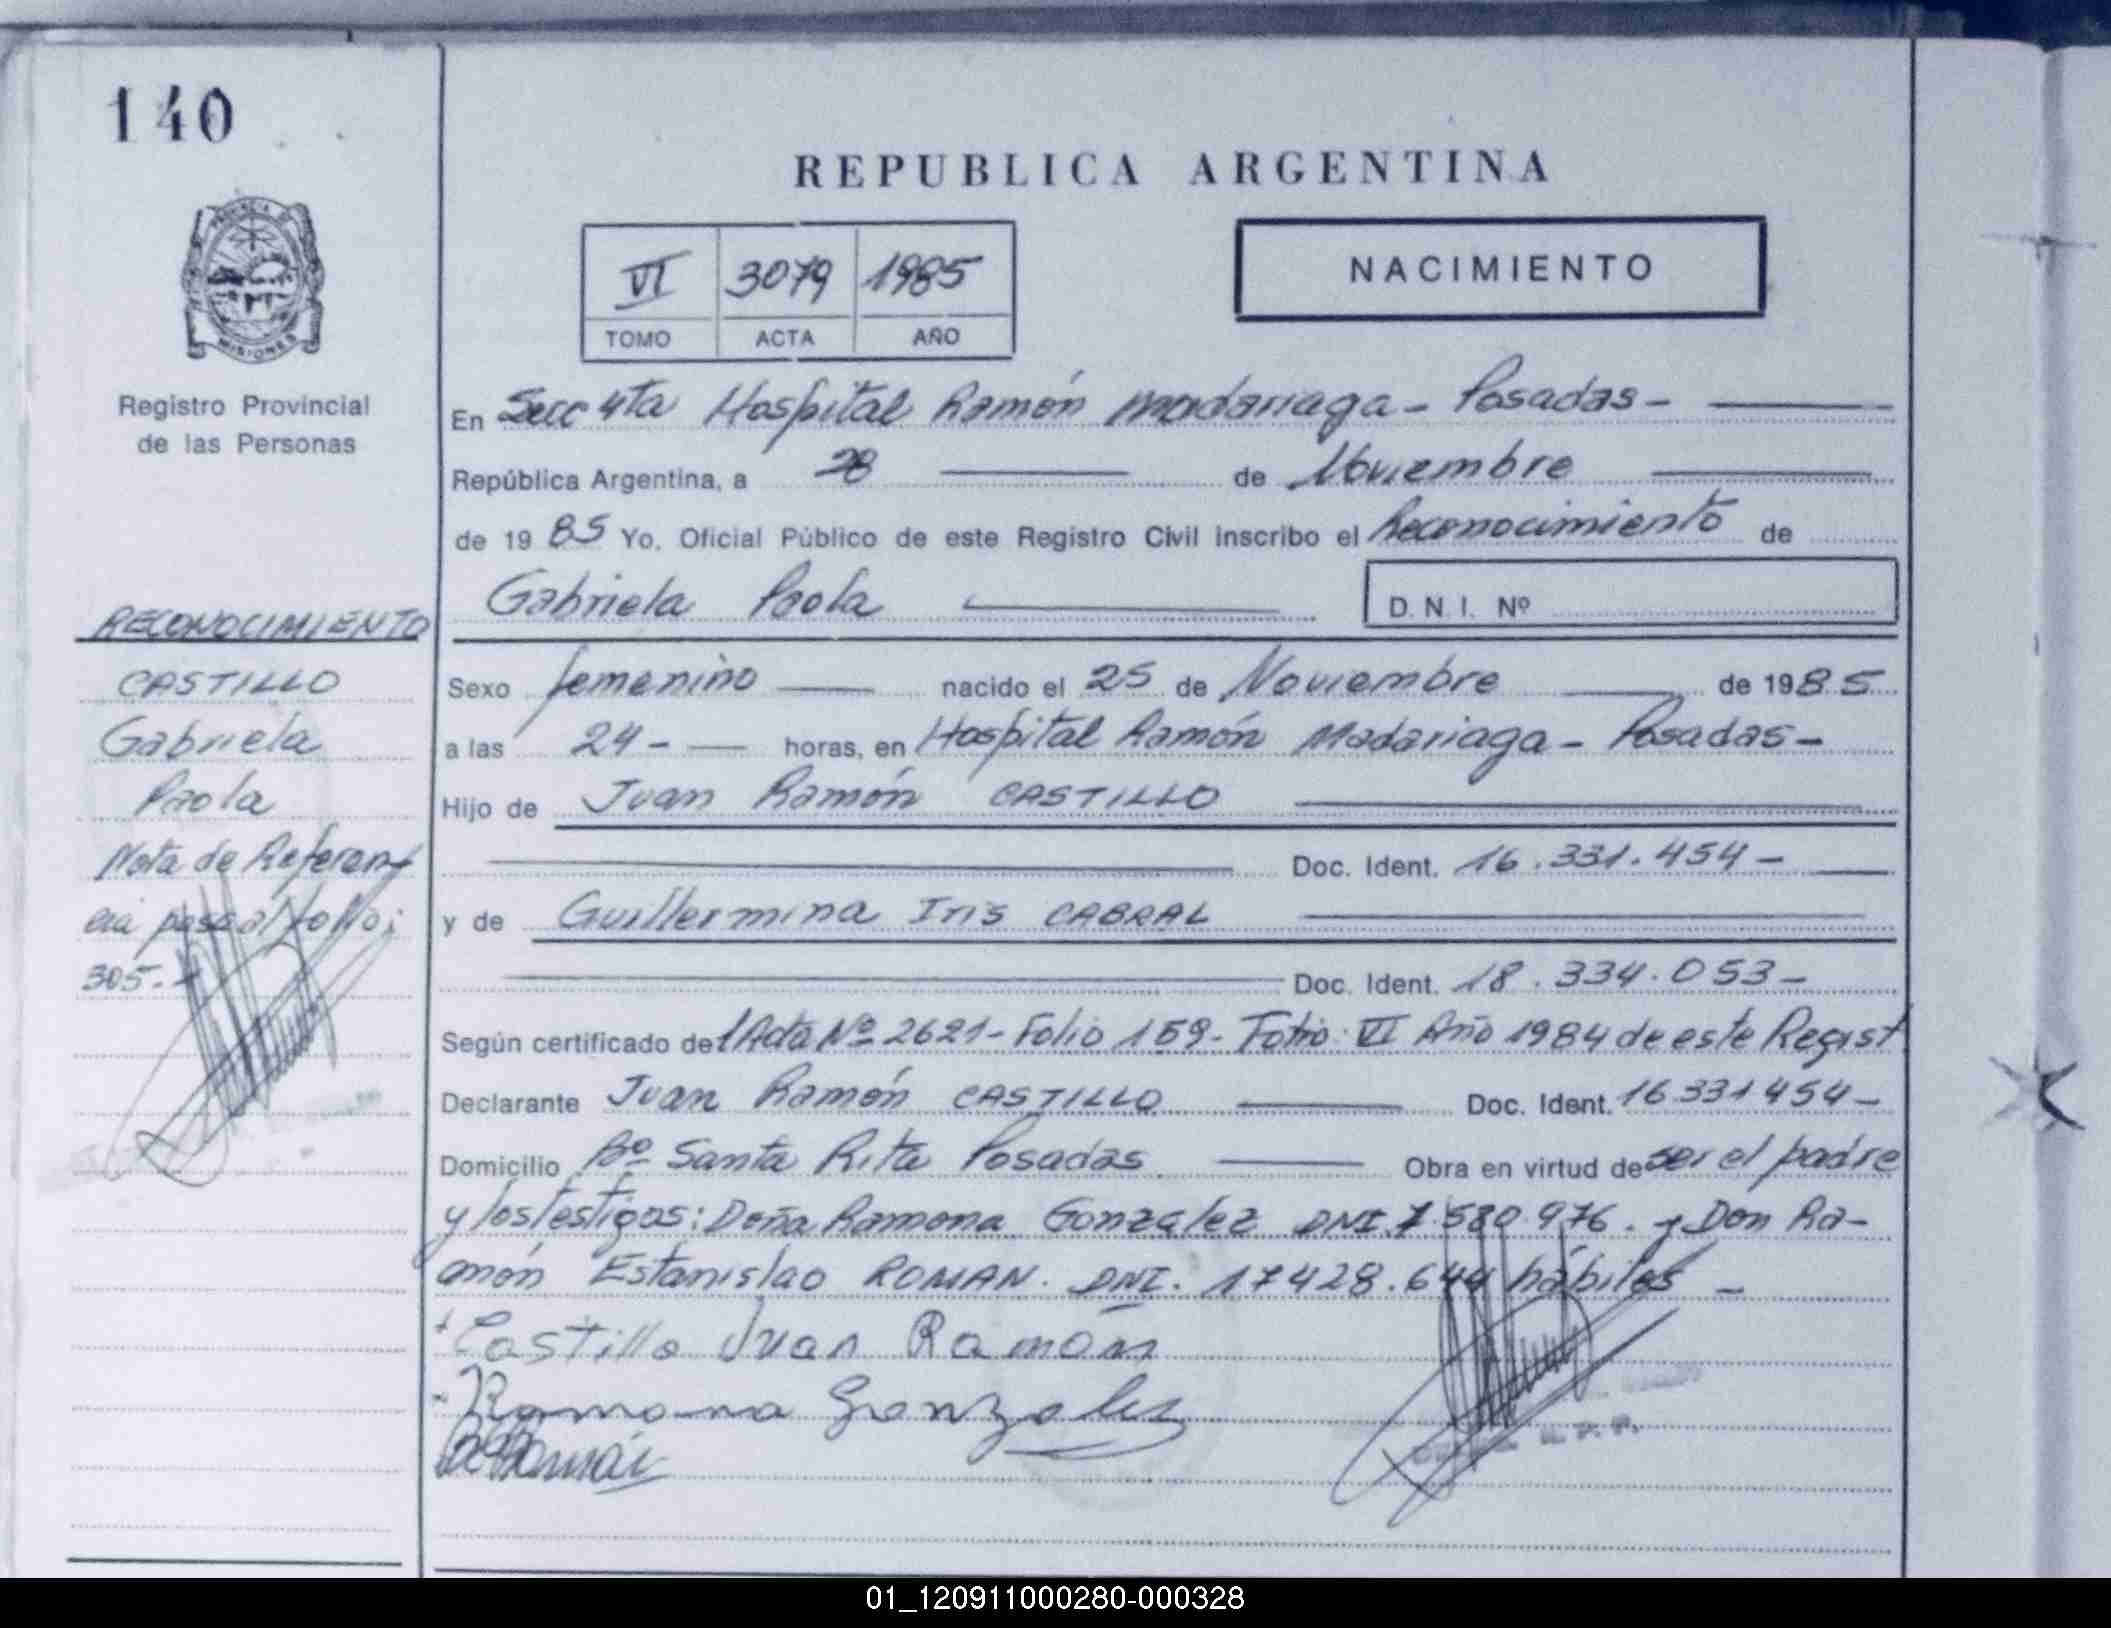 140
REPUBLICA ARGENTINA
PROVINCIA DE MISIONES
VI 3079 1985
TOMO ACTA AÑO
NACIMIENTO
Registro Provincial
de las Personas
En Secc 4ta Hospital Ramón Madariaga - Posadas -
República Argentina, a 28 de Noviembre
de 1985 Yo, Oficial Público de este Registro Civil inscribo el Reconocimiento de
Gabriela Paola D.N.I. Nº
RECONOCIMIENTO
CASTILLO
Gabriela
Paola
Nota de Referen
cia pasa al folio:
305.-
Sexo femenino nacido el 25 de Noviembre de 1985
a las 24 - horas, en Hospital Ramón Madariaga - Posadas -
Hijo de Juan Ramón CASTILLO
Doc. Ident. 16.331.454 -
y de Guillermina Iris CABRAL
Doc. Ident. 18.334.053 -
Según certificado del Acta Nº 2621 - Folio 159 - VI Año 1984 de este Regist
Declarante Juan Ramón CASTILLO Doc. Ident. 16 331 454 -
Domicilio Bº Santa Rita Posadas Obra en virtud de ser el padre
y los testigos: Doña Ramona Gonzalez DNI. 976. y Don Ra-
món Estanislao ROMAN. DNI. 17428.644 hábiles -
Castillo Juan Ramón
Ramona Gonzalez
01_120911000280-000328